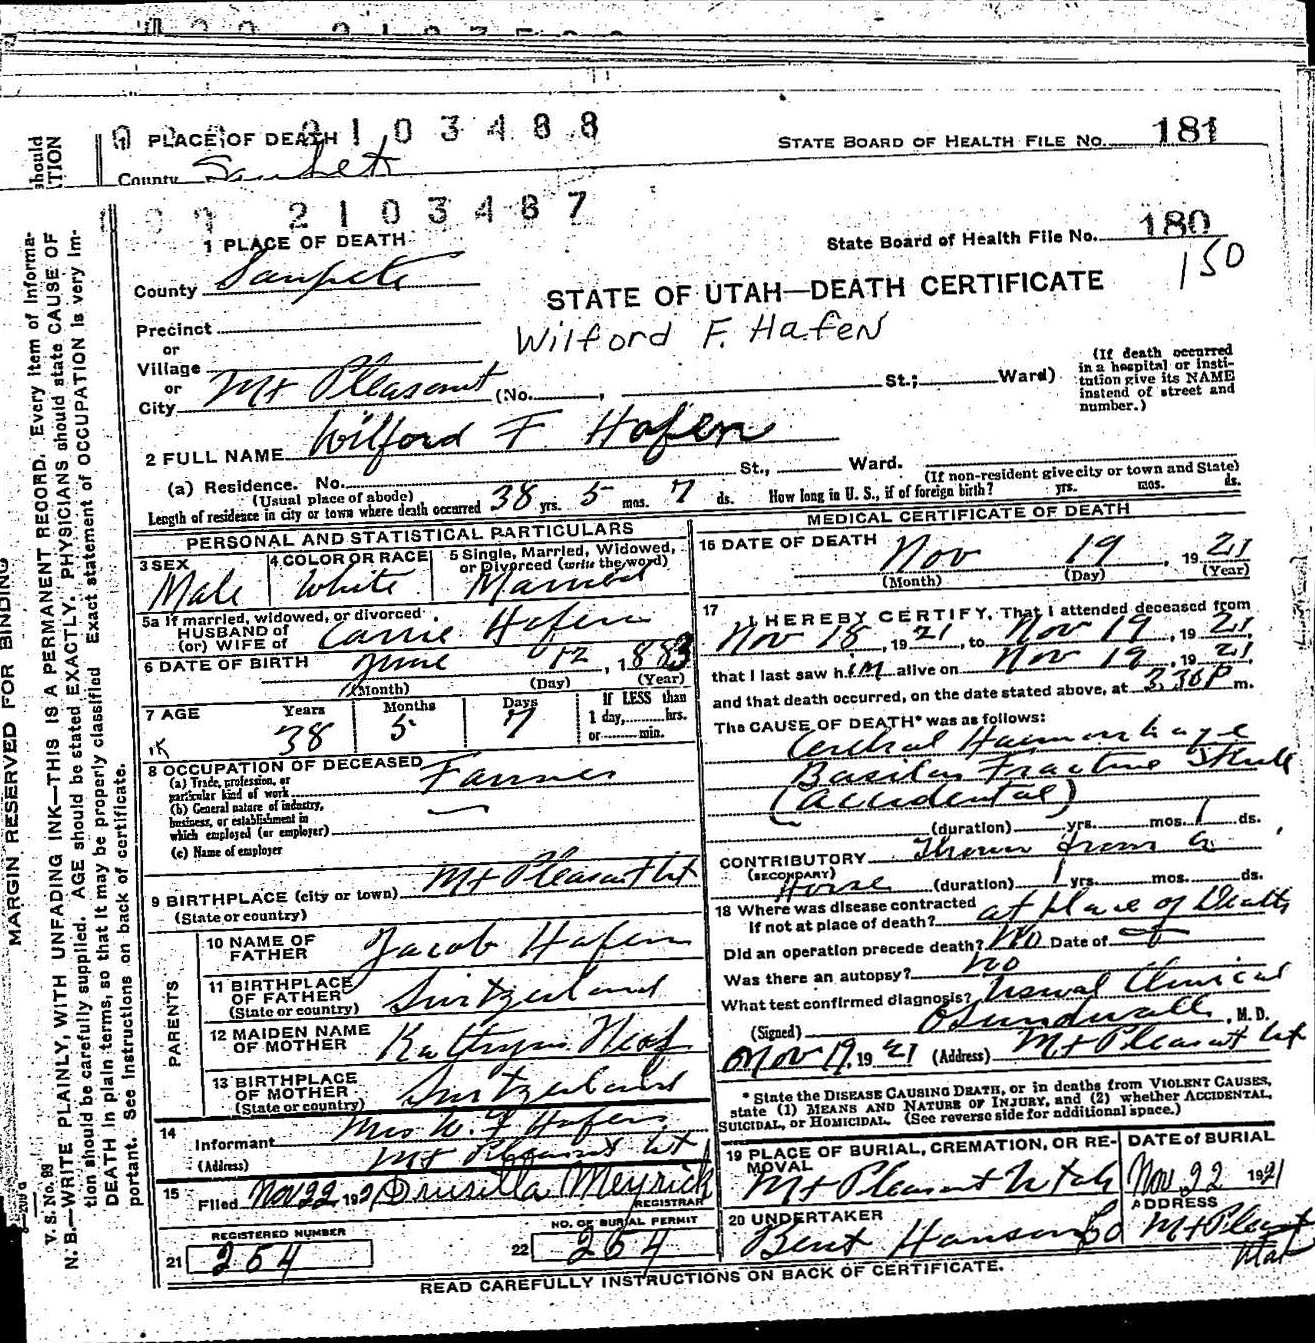 2 1 0 3 4 8 8
1 PLACE OF DEATH
STATE BOARD OF HEALTH FILE No. 181
County Sanpete
2 1 0 3 4 8 7
1 PLACE OF DEATH
State Board of Health File No. 180
150
County Sanpete
STATE OF UTAH—DEATH CERTIFICATE
Wilford F. Hafen
Precinct
or
Village
or
City Mt Pleasant (No. , St.; Ward)
(If death occurred in a hospital or institution give its NAME instead of street and number.)
2 FULL NAME Wilford F Hafen
(a) Residence. No. St., Ward.
(Usual place of abode) (If non-resident give city or town and State)
Length of residence in city or town where death occurred 38 yrs. 5 mos. 7 ds. How long in U. S., if of foreign birth? yrs. mos. ds.
PERSONAL AND STATISTICAL PARTICULARS
3 SEX Male
4 COLOR OR RACE White
5 Single, Married, Widowed, or Divorced (write the word) Married
5a If married, widowed, or divorced
HUSBAND of
(or) WIFE of Carrie Hafen
6 DATE OF BIRTH June 12, 1883
(Month) (Day) (Year)
7 AGE Years 38 Months 5 Days 7 If LESS than 1 day, hrs. or min.
8 OCCUPATION OF DECEASED
(a) Trade, profession, or particular kind of work Farmer
(b) General nature of industry, business, or establishment in which employed (or employer)
(c) Name of employer
9 BIRTHPLACE (city or town) Mt Pleasant Ut
(State or country)
PARENTS
10 NAME OF FATHER Jacob Hafen
11 BIRTHPLACE OF FATHER (State or country) Switzerland
12 MAIDEN NAME OF MOTHER Kathryn Neaf
13 BIRTHPLACE OF MOTHER (State or country) Switzerland
14 Informant Mrs W. F Hafen
(Address) Mt Pleasant Ut
15 Filed Nov 22 1921 Drusilla Meyrick
REGISTRAR
REGISTERED NUMBER
21 254
NO. OF BURIAL PERMIT
22 254
MEDICAL CERTIFICATE OF DEATH
16 DATE OF DEATH Nov 19, 1921
(Month) (Day) (Year)
17 I HEREBY CERTIFY, That I attended deceased from
Nov 18, 1921, to Nov 19, 1921,
that I last saw him alive on Nov 19, 1921,
and that death occurred, on the date stated above, at 3 30 P m.
The CAUSE OF DEATH* was as follows:
Cerebral Haemorrhage
Basilar Fracture Skull
(Accidental)
(duration) yrs. mos. 1 ds.
CONTRIBUTORY Thrown from a
(SECONDARY) Horse (duration) yrs. mos. ds.
18 Where was disease contracted
If not at place of death? at place of Death
Did an operation precede death? No Date of
Was there an autopsy? no
What test confirmed diagnosis? Usual Clinical
(Signed) O Sundwall, M. D.
Nov 19, 1921 (Address) Mt Pleasant Ut
* State the DISEASE CAUSING DEATH, or in deaths from VIOLENT CAUSES, state (1) MEANS AND NATURE OF INJURY, and (2) whether ACCIDENTAL, SUICIDAL, or HOMICIDAL. (See reverse side for additional space.)
19 PLACE OF BURIAL, CREMATION, OR REMOVAL Mt Pleasant Utah
DATE of BURIAL Nov 22 1921
20 UNDERTAKER Bent Hanson Co
ADDRESS Mt Pleasant Utah
READ CAREFULLY INSTRUCTIONS ON BACK OF CERTIFICATE.
MARGIN RESERVED FOR BINDING
V. S. No. 89
N. B.—WRITE PLAINLY, WITH UNFADING INK—THIS IS A PERMANENT RECORD. Every item of information should be carefully supplied. AGE should be stated EXACTLY. PHYSICIANS should state CAUSE OF DEATH in plain terms, so that it may be properly classified. Exact statement of OCCUPATION is very important. See instructions on back of certificate.